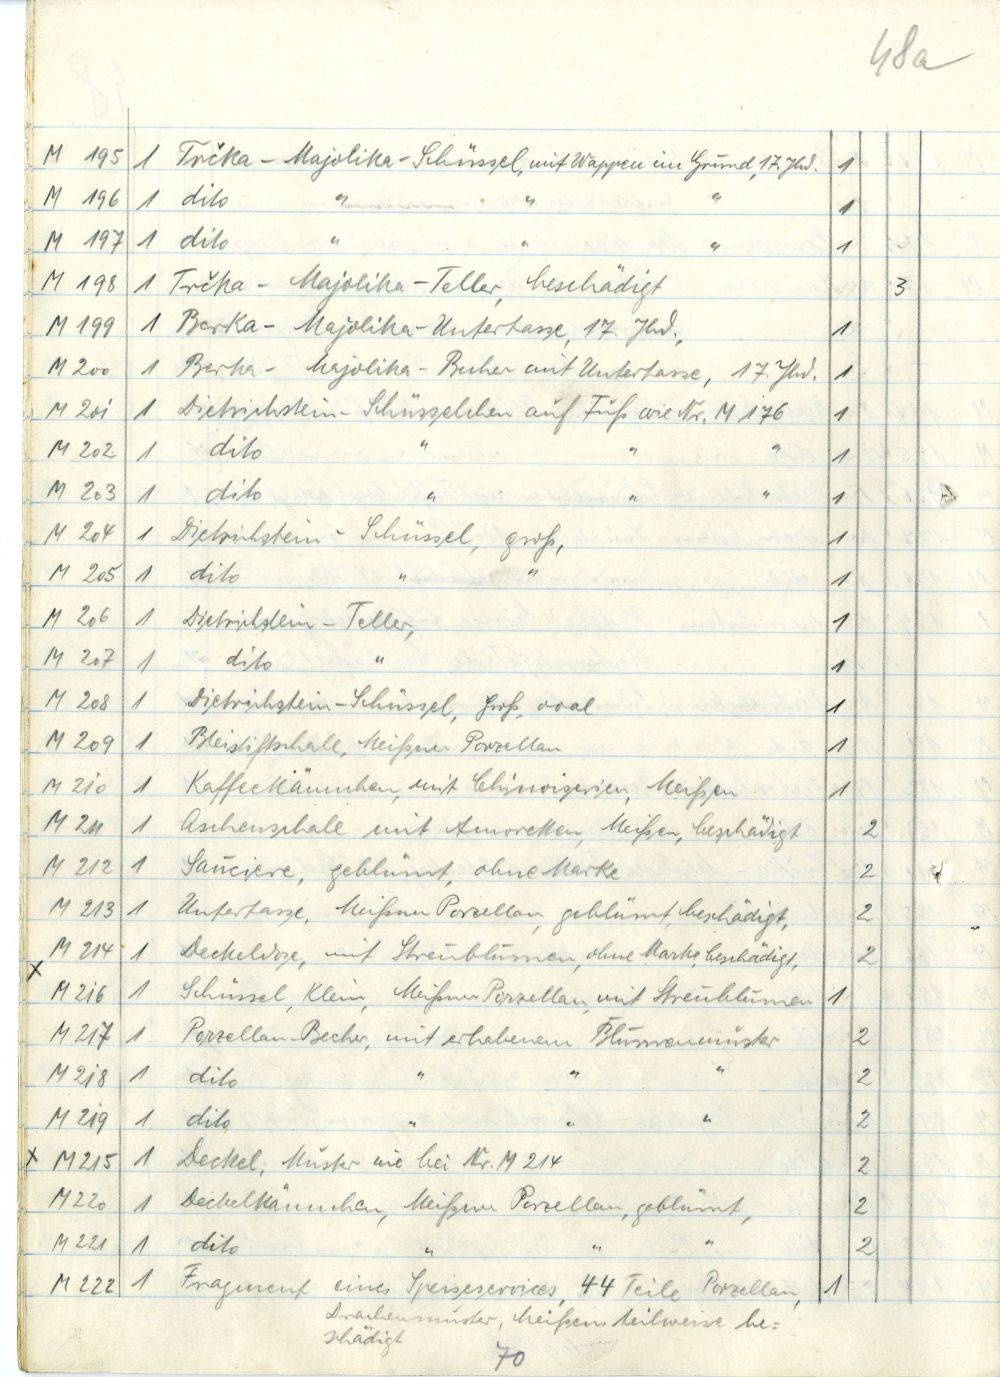 48a
M 195 1 Trčka - Majolika - Schüssel, mit Wappen im Grund, 17. Jhd. 1
M 196 1 dito " " " 1
M 197 1 dito " " " 1
M 198 1 Trčka - Majolika - Teller, beschädigt 3
M 199 1 Berka - Majolika - Untertasse, 17. Jhd., 1
M 200 1 Berka - Majolika - Becher mit Untertasse, 17. Jhd. 1
M 201 1 Dietrichstein - Schüsselchen auf Fuß wie Nr. M 176 1
M 202 1 dito " " " 1
M 203 1 dito " " " 1
M 204 1 Dietrichstein - Schüssel, groß, 1
M 205 1 dito " " 1
M 206 1 Dietrichstein - Teller, 1
M 207 1 dito " 1
M 208 1 Dietrichstein - Schüssel, groß, oval 1
M 209 1 Bleistiftschale, Meißner Porzellan 1
M 210 1 Kaffeekännchen, mit Chinoiserien, Meißen 1
M 211 1 Aschenschale mit Amoretten, Meißen, beschädigt 2
M 212 1 Sauciere, geblümt, ohne Marke 2
M 213 1 Untertasse, Meißner Porzellan, geblümt, beschädigt, 2
M 214 1 Deckeldose, mit Streublumen, ohne Marke, beschädigt, 2
x
M 216 1 Schüssel, klein, Meißner Porzellan, mit Streublumen 1
M 217 1 Porzellan-Becher, mit erhabenem Blumenmuster 2
M 218 1 dito " " " 2
M 219 1 dito " " " 2
x M 215 1 Deckel, Muster wie bei Nr. M 214 2
M 220 1 Deckelkännchen, Meißner Porzellan, geblümt, 2
M 221 1 dito " " " 2
M 222 1 Fragment eines Speiseservices, 44 Teile Porzellan, 1
Drachenmuster, Meißen, teilweise be=
schädigt
70